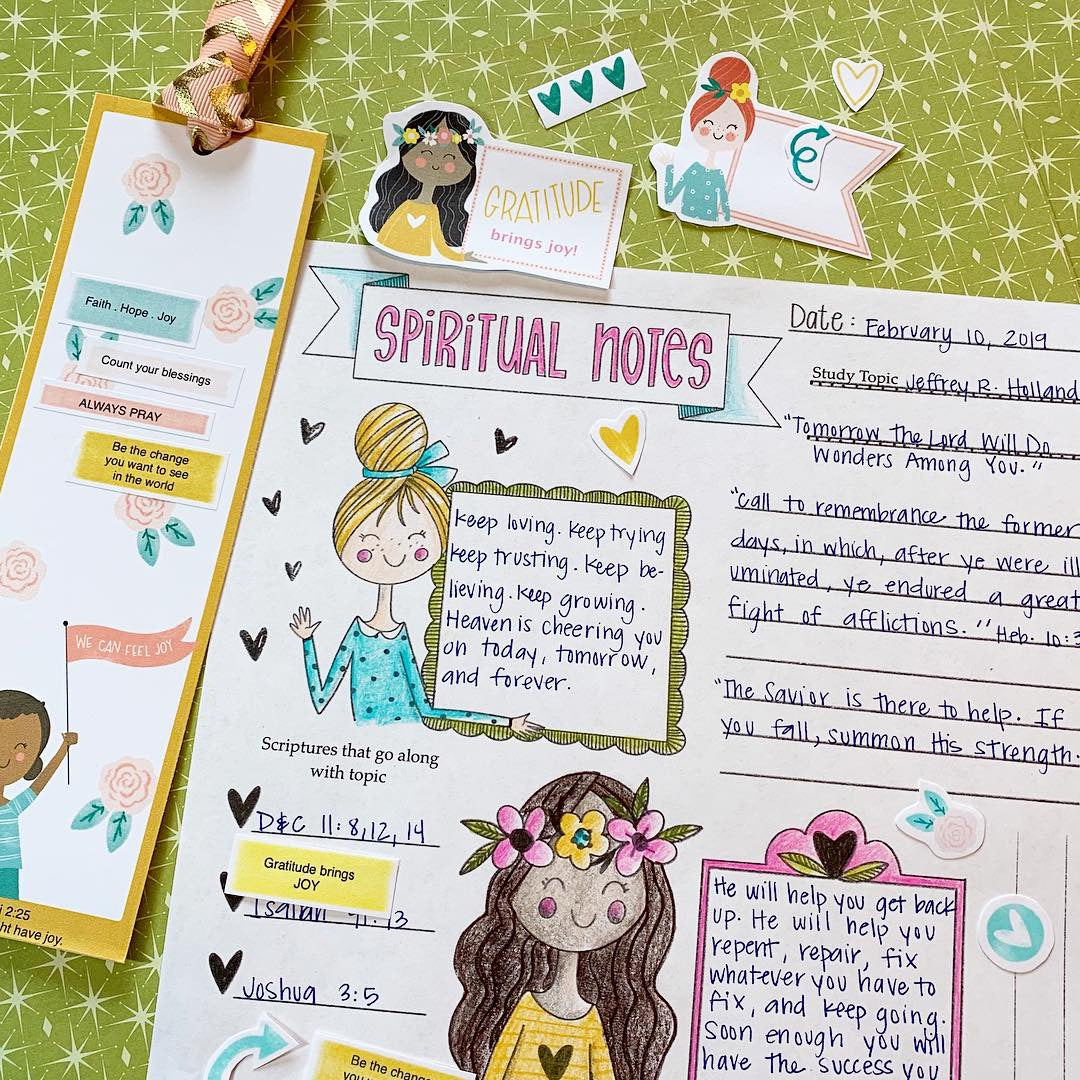 GRATITUDE
brings joy!
Faith . Hope . Joy
Count your blessings
ALWAYS PRAY
Be the change
you want to see
in the world
WE CAN FEEL JOY
2:25
ht have joy.
SPIRITUAL NOTES
Date: February 10, 2019
Study Topic Jeffrey R. Holland
"Tomorrow the Lord Will Do
Wonders Among You."
"Call to remembrance the former
days, in which, after ye were ill
uminated, ye endured a great
fight of afflictions." Heb. 10:3
"The Savior is there to help. If
you fall, summon His strength.
keep loving. keep trying
keep trusting. keep be-
lieving. keep growing.
Heaven is cheering you
on today, tomorrow,
and forever.
Scriptures that go along
with topic
D&C 11:8,12,14
Gratitude brings
JOY
Isaiah 41:13
Joshua 3:5
Be the change
you want to see
He will help you get back
up. He will help you
repent, repair, fix
whatever you have to
fix, and keep going.
Soon enough you will
have the success you